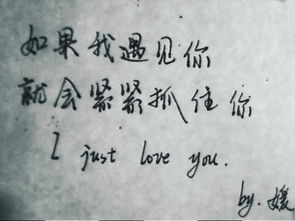 如果我遇见你
就会紧紧抓住你
I just love you.
by.媛